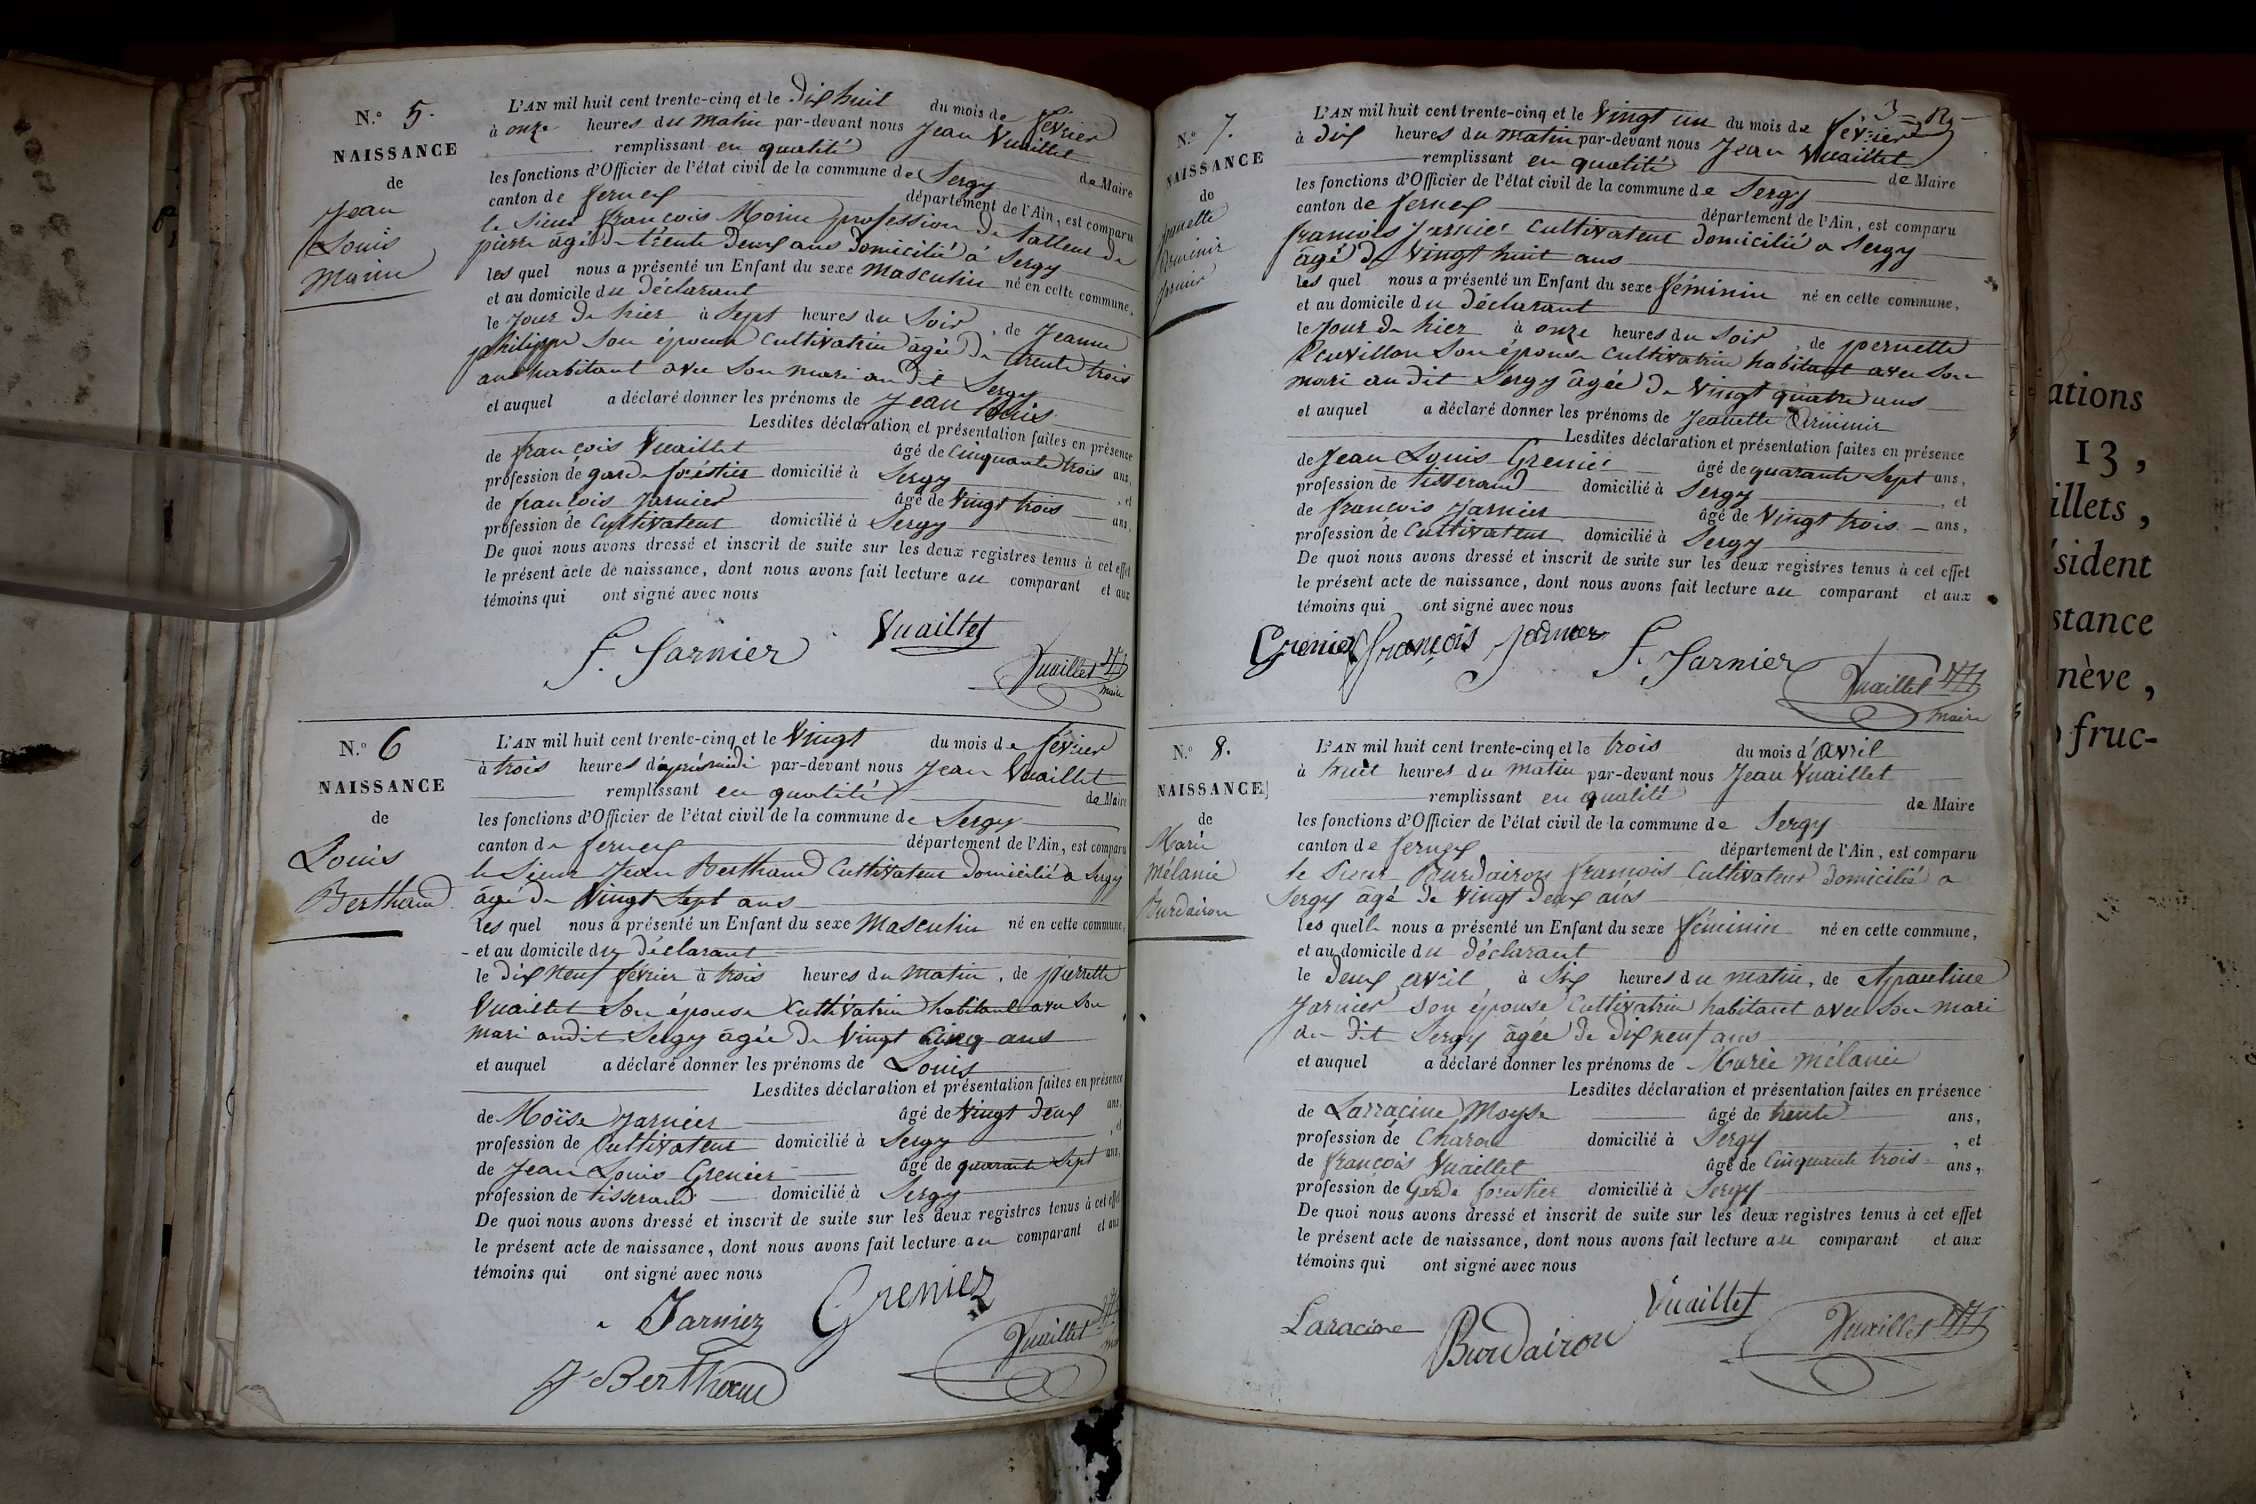 N.° 5.
NAISSANCE
de
Jean
Louis
Morin
L'AN mil huit cent trente-cinq et le dix huit du mois de février
à onze heures du matin par-devant nous Jean Vuaillet
remplissant en qualité de Maire
les fonctions d'Officier de l'état civil de la commune de Sergy
canton de fernex département de l'Ain, est comparu
le Sieur françois Morin profession de tailleur de
pierre âgé de trente deux ans domicilié à Sergy
les quel nous a présenté un Enfant du sexe masculin né en cette commune,
et au domicile du déclarant
le jour de hier à Sept heures du Soir, de Jeanne
philippe son épouse cultivatrice âgée de trente trois
ans habitant avec son mari au dit Sergy
et auquel a déclaré donner les prénoms de Jean Louis
Lesdites déclaration et présentation faites en présence
de françois Vuaillet âgé de Cinquante trois ans,
profession de garde foréstier domicilié à Sergy, et
de françois Jarnier âgé de Vingt trois ans,
profession de Cultivateur domicilié à Sergy
De quoi nous avons dressé et inscrit de suite sur les deux registres tenus à cet effet
le présent acte de naissance, dont nous avons fait lecture au comparant et aux
témoins qui ont signé avec nous
F. Jarnier Vuaillet
Vuaillet
maire
N.° 6
NAISSANCE
de
Louis
Berthaud
L'AN mil huit cent trente-cinq et le Vingt du mois de février
à trois heures d'après midi par-devant nous Jean Vuaillet
remplissant en qualité de Maire
les fonctions d'Officier de l'état civil de la commune de Sergy
canton de fernex département de l'Ain, est comparu
le Sieur Jean Berthaud Cultivateur domicilié a Sergy
âgé de Vingt Sept ans
les quel nous a présenté un Enfant du sexe Masculin né en cette commune,
et au domicile du déclarant
le dix neuf février à trois heures du matin, de pierrette
Vuaillet Son épouse Cultivatrice habitant avec son
mari audit Sergy âgée de Vingt Cinq ans
et auquel a déclaré donner les prénoms de Louis
Lesdites déclaration et présentation faites en présence
de Moïse Jarnier âgé de Vingt deux ans,
profession de Cultivateur domicilié à Sergy, et
de Jean Louis Grenier âgé de quarante Sept ans,
profession de tisserand domicilié à Sergy
De quoi nous avons dressé et inscrit de suite sur les deux registres tenus à cet effet
le présent acte de naissance, dont nous avons fait lecture au comparant et aux
témoins qui ont signé avec nous
Jarniez Greniez
J Berthaud Vuaillet
N.° 7.
NAISSANCE
de
L'AN mil huit cent trente-cinq et le Vingt un du mois de février
à dix heures du matin par-devant nous Jean Vuaillet
remplissant en qualité de Maire
les fonctions d'Officier de l'état civil de la commune de Sergy
canton de fernex département de l'Ain, est comparu
françois Jarnier Cultivateur domicilié a Sergy
âgé de Vingt huit ans
les quel nous a présenté un Enfant du sexe féminin né en cette commune,
et au domicile du déclarant
le Jour de hier à onze heures du Soir, de pernette
Ecuvillon Son épouse Cultivatrice habitant avec Son
mari au dit Sergy âgée de Vingt quatre ans
et auquel a déclaré donner les prénoms de
Lesdites déclaration et présentation faites en présence
de Jean Louis Grenier âgé de quarante Sept ans,
profession de tisserand domicilié à Sergy, et
de françois Jarnier âgé de Vingt trois ans,
profession de Cultivateur domicilié à Sergy
De quoi nous avons dressé et inscrit de suite sur les deux registres tenus à cet effet
le présent acte de naissance, dont nous avons fait lecture au comparant et aux
témoins qui ont signé avec nous
Grenier François Jarnier F. Jarnier
Vuaillet
maire
N.° 8.
NAISSANCE
de
Marie
Mélanie
Burdairon
L'AN mil huit cent trente-cinq et le trois du mois d'avril
à huit heures du matin par-devant nous Jean Vuaillet
remplissant en qualité de Maire
les fonctions d'Officier de l'état civil de la commune de Sergy
canton de fernex département de l'Ain, est comparu
le Sieur Burdairon françois Cultivateur domicilié a
Sergy âgé de Vingt deux ans
les quelle nous a présenté un Enfant du sexe féminin né en cette commune,
et au domicile du déclarant
le deux avril à Six heures du matin, de Apauline
Jarnier son épouse Cultivatrice habitant avec Son mari
au dit Sergy âgée de dix neuf ans
et auquel a déclaré donner les prénoms de Marie Mélanie
Lesdites déclaration et présentation faites en présence
de Larracine Moyse âgé de trente ans,
profession de Charon domicilié à Sergy, et
de françois Vuaillet âgé de Cinquante trois ans,
profession de Garde forestier domicilié à Sergy
De quoi nous avons dressé et inscrit de suite sur les deux registres tenus à cet effet
le présent acte de naissance, dont nous avons fait lecture au comparant et aux
témoins qui ont signé avec nous
Laracine Burdairon Vuaillet Vuaillet
ations
13,
illets,
sident
stance
nève,
fruc-